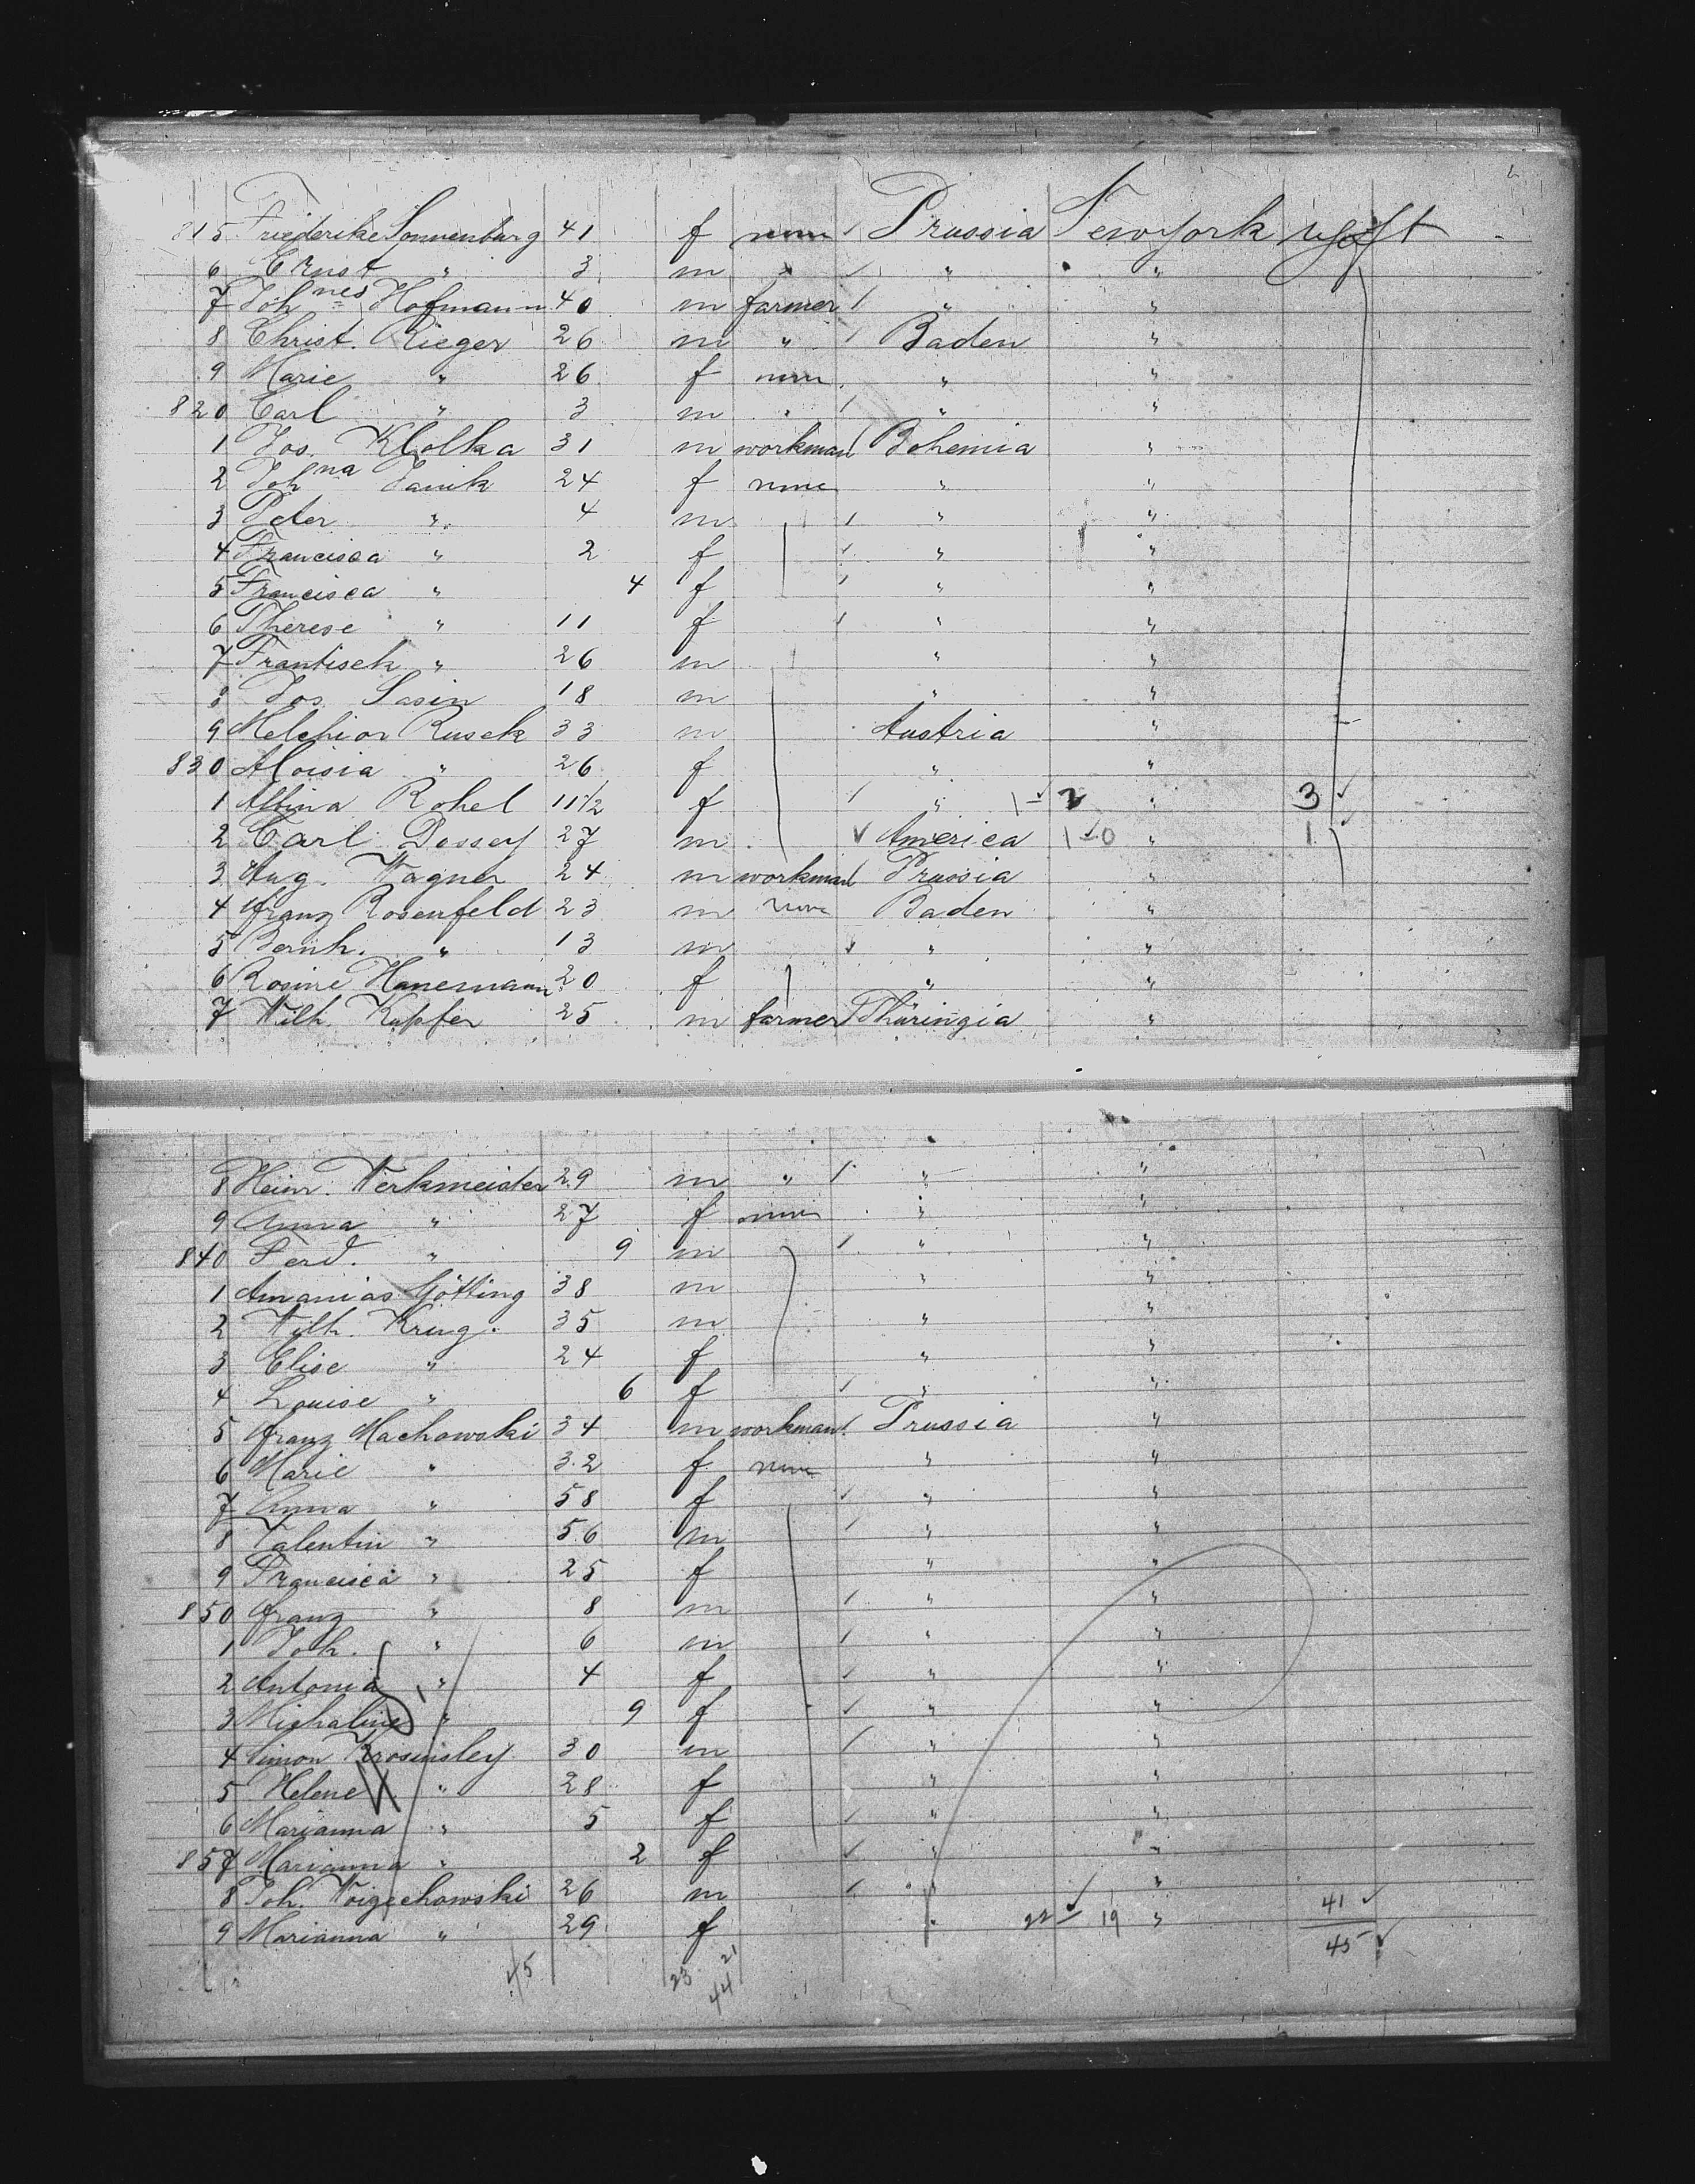 815 Friederike Sonnenburg 41 f none Prussia Newyork
6 Ernst " 3 m " " "
7 Joh nes Hofmann 40 m farmer " "
8 Christ. Rieger 26 m " Baden "
9 Marie " 26 f none " "
820 Carl " 3 m " " "
1 Jos. Klolka 31 m workman Bohemia "
2 Joh na Janik 24 f none " "
3 Peter " 4 m " "
4 Francisca " 2 f " "
5 Francisca " 4 f " "
6 Therese " 11 f " "
7 Frantisek " 26 m " "
8 Jos. Sasin 18 m " "
9 Melchior Rusek 33 m Austria "
830 Aloisia " 26 f " "
1 Albina Rohel 11 1/2 f " 1 - 2 " 3
2 Carl Dossey 27 m America 1 - 0 " 1
3 Aug. Wagner 24 m workman Prussia "
4 Franz Rosenfeld 23 m none Baden "
5 Bernh. " 13 m " "
6 Rosine Hanemann 20 f " "
7 Wilh. Kupfer 25 m farmer Thüringia "
8 Heinr. Werkmeister 29 m " " "
9 Anna " 27 f none " "
840 Ferd. " 9 m " "
1 Amanias Götting 38 m " "
2 Wilh. Krug. 35 m " "
3 Elise " 24 f " "
4 Louise " 6 f " "
5 Franz Machowski 34 m workman Prussia "
6 Marie " 32 f none " "
7 Anna " 58 f " "
8 Valentin " 56 m " "
9 Francisca " 25 f " "
850 Franz " 8 m " "
1 Joh. " 6 m " "
2 Antonia " 4 f " "
3 Michaline " 9 f " "
4 Simon Krosinsley 30 m " "
5 Helene " 28 f " "
6 Marianna " 5 f " "
857 Marianna " 2 f " "
8 Joh. Woigechowski 26 m " " 41
9 Marianna " 29 f " 22 - 19 " 45
45 23 21
44